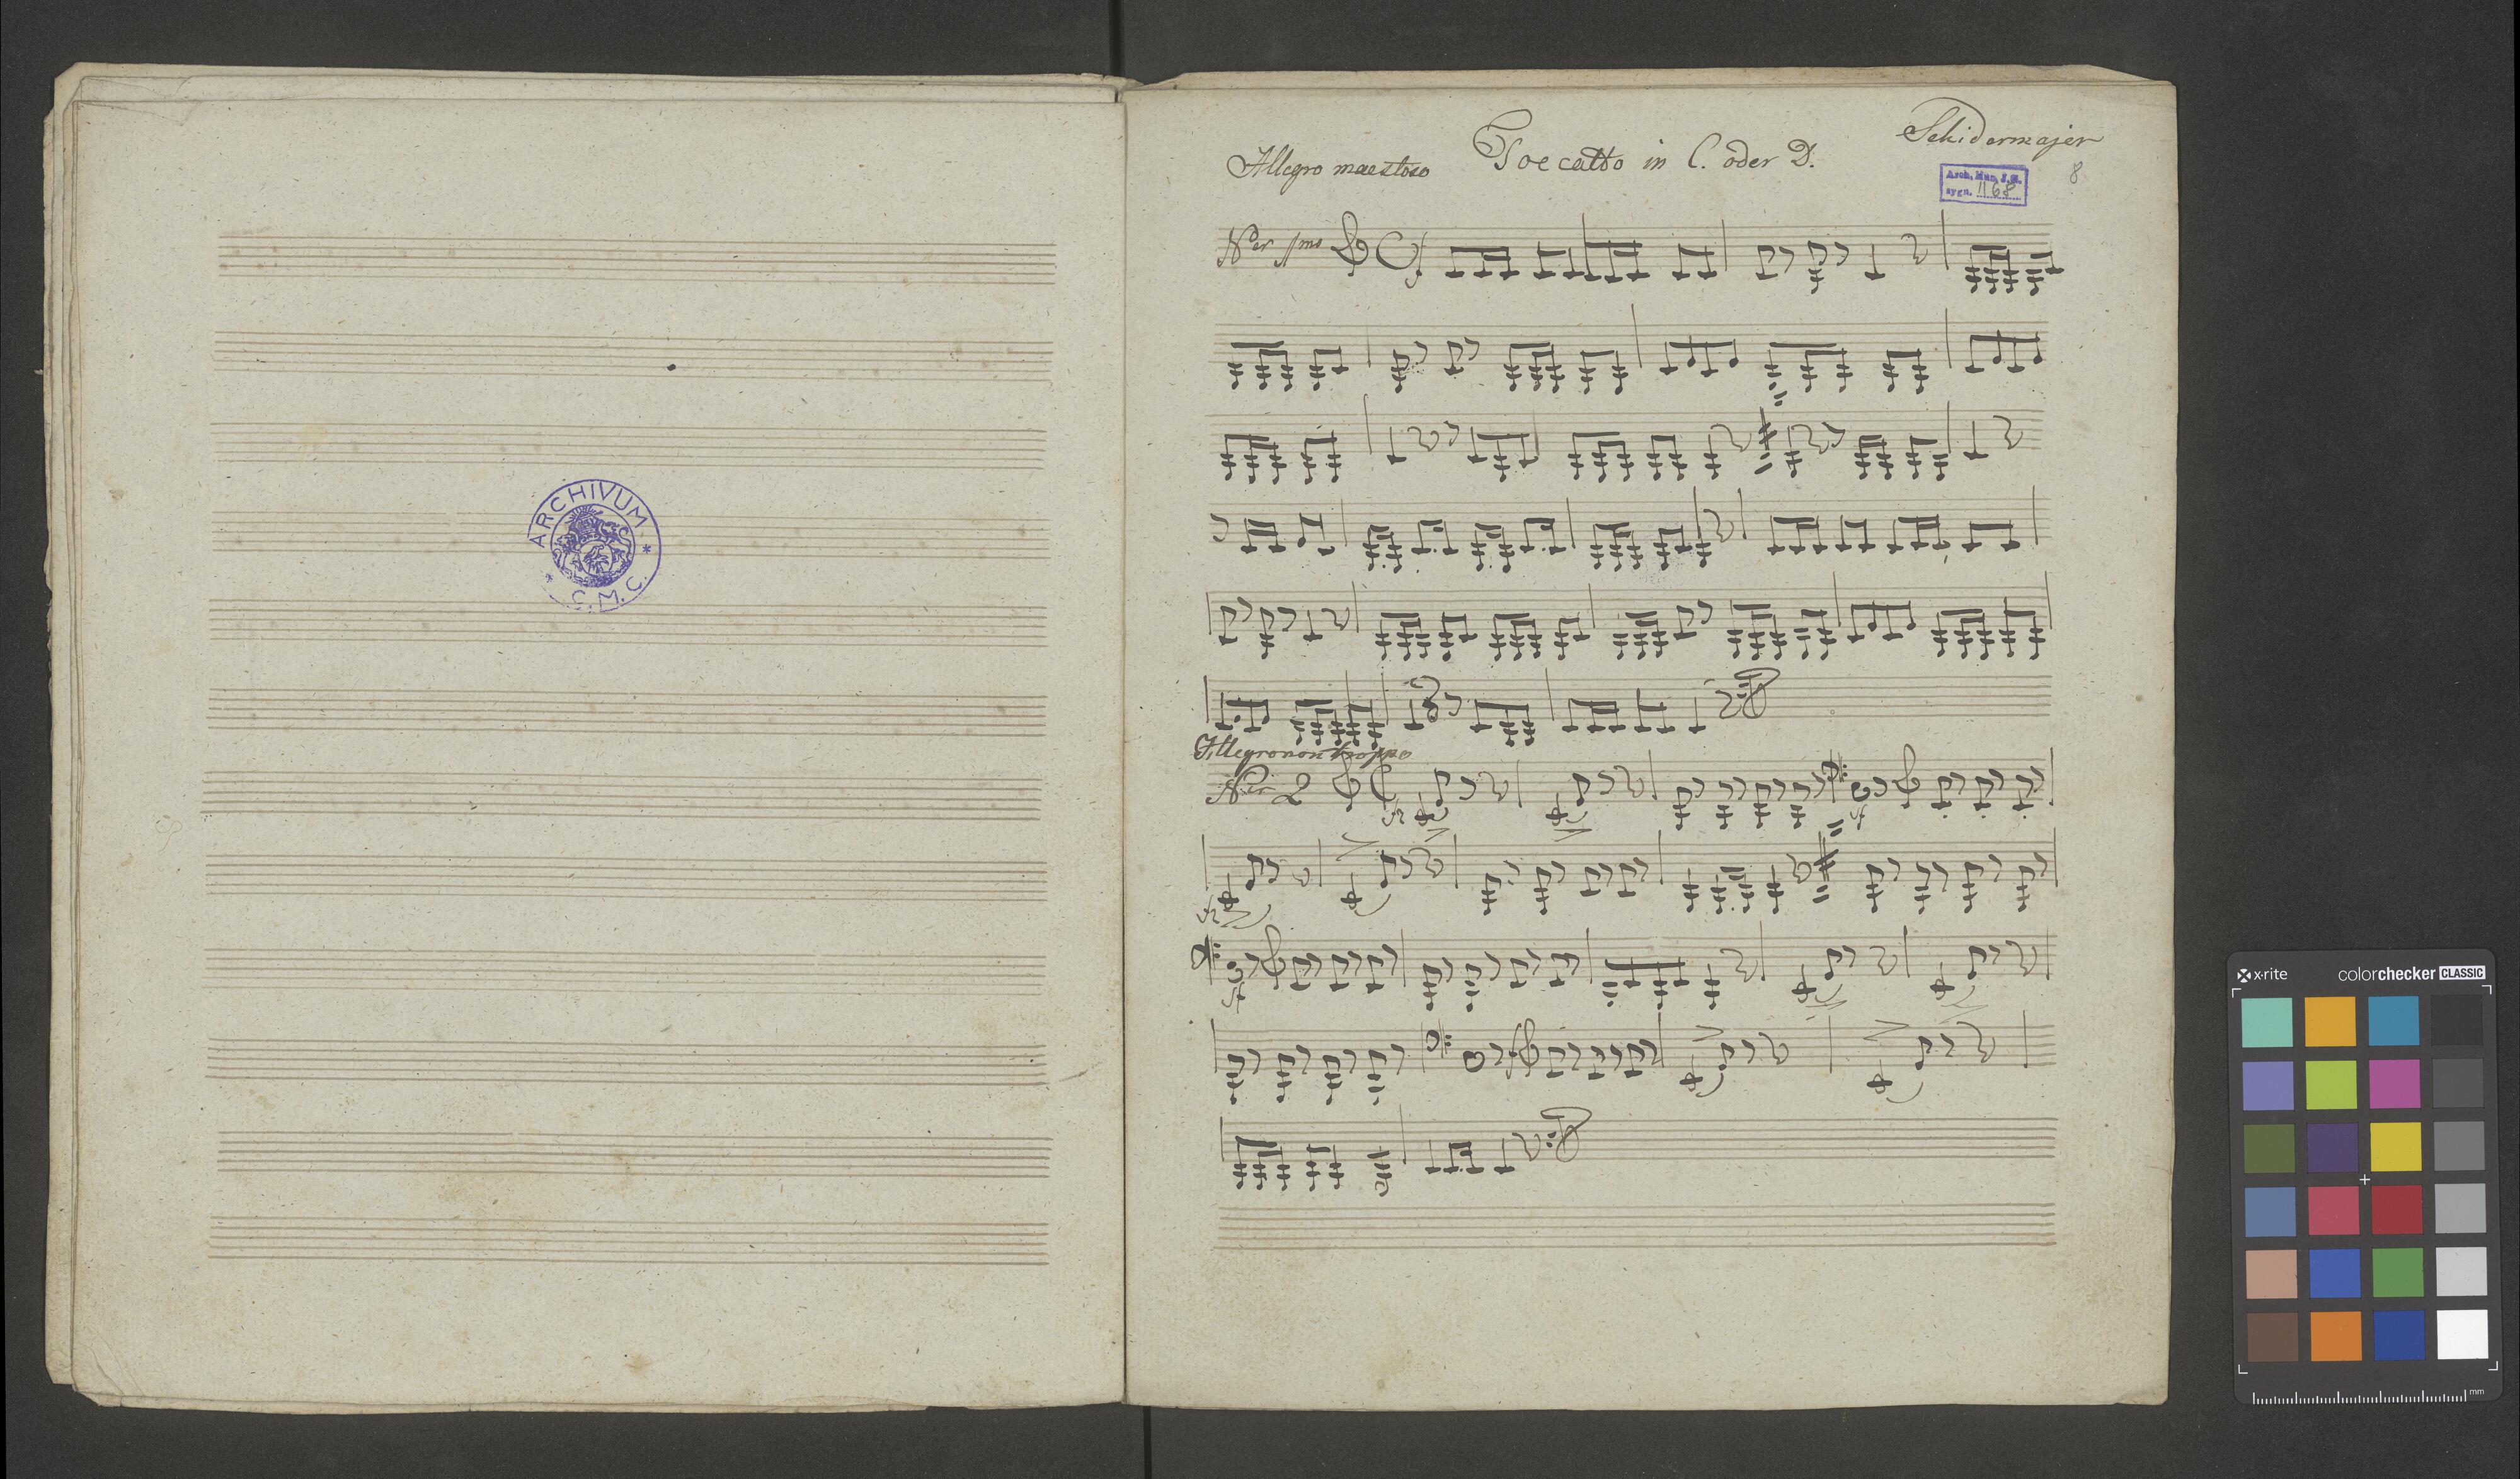 ARCHIVUM * C. M. C. *
Toccatto in C. oder D.
Schidermajer
Allegro maestoso
Arch. Mus. J. G.
sygn. 1168
8
Ner 1mo
Allegro non troppo
Ner 2
x-rite
colorchecker CLASSIC
mm